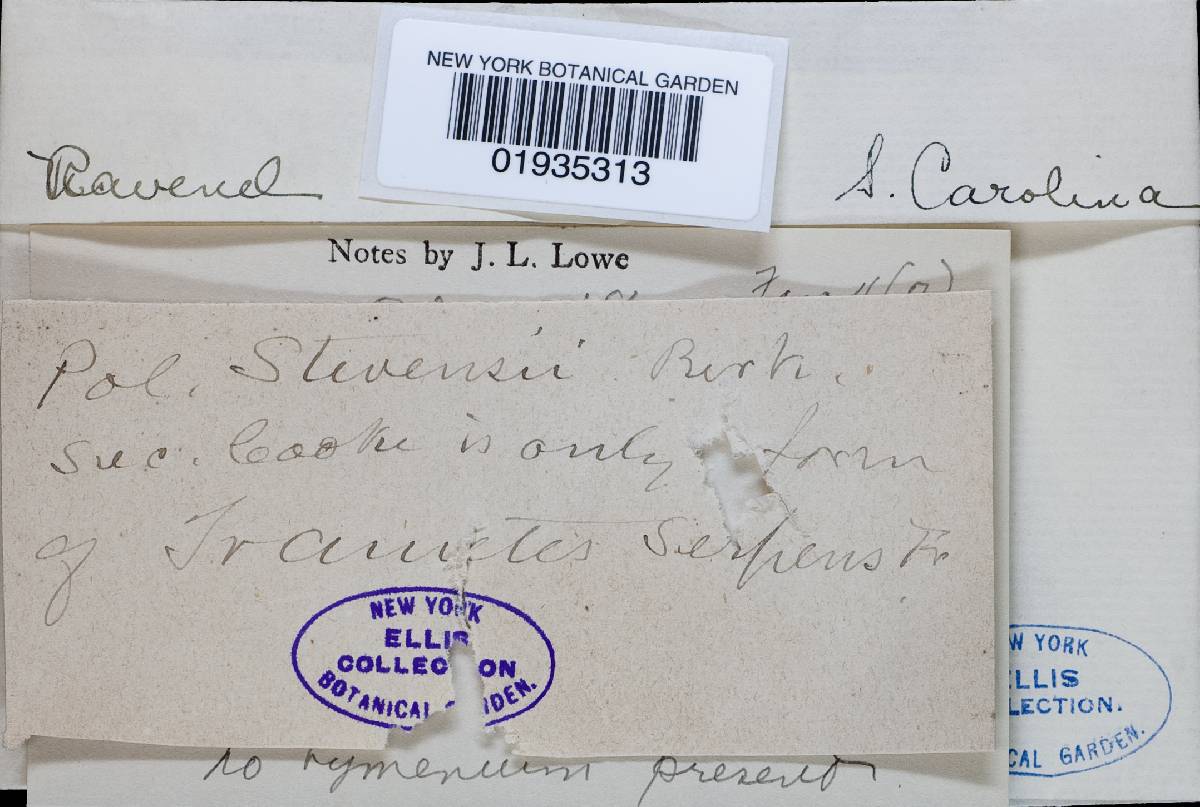 NEW YORK BOTANICAL GARDEN
01935313
Ravenel
S. Carolina
Notes by J. L. Lowe
Pol. Stevensii Berk.
sec. Cooke is only form
of Trametes Serpens Fr
NEW YORK
ELLIS
COLLEC ON
BOTANICAL DEN.
W YORK
LLIS
LECTION.
CAL GARDEN.
no hymenium present